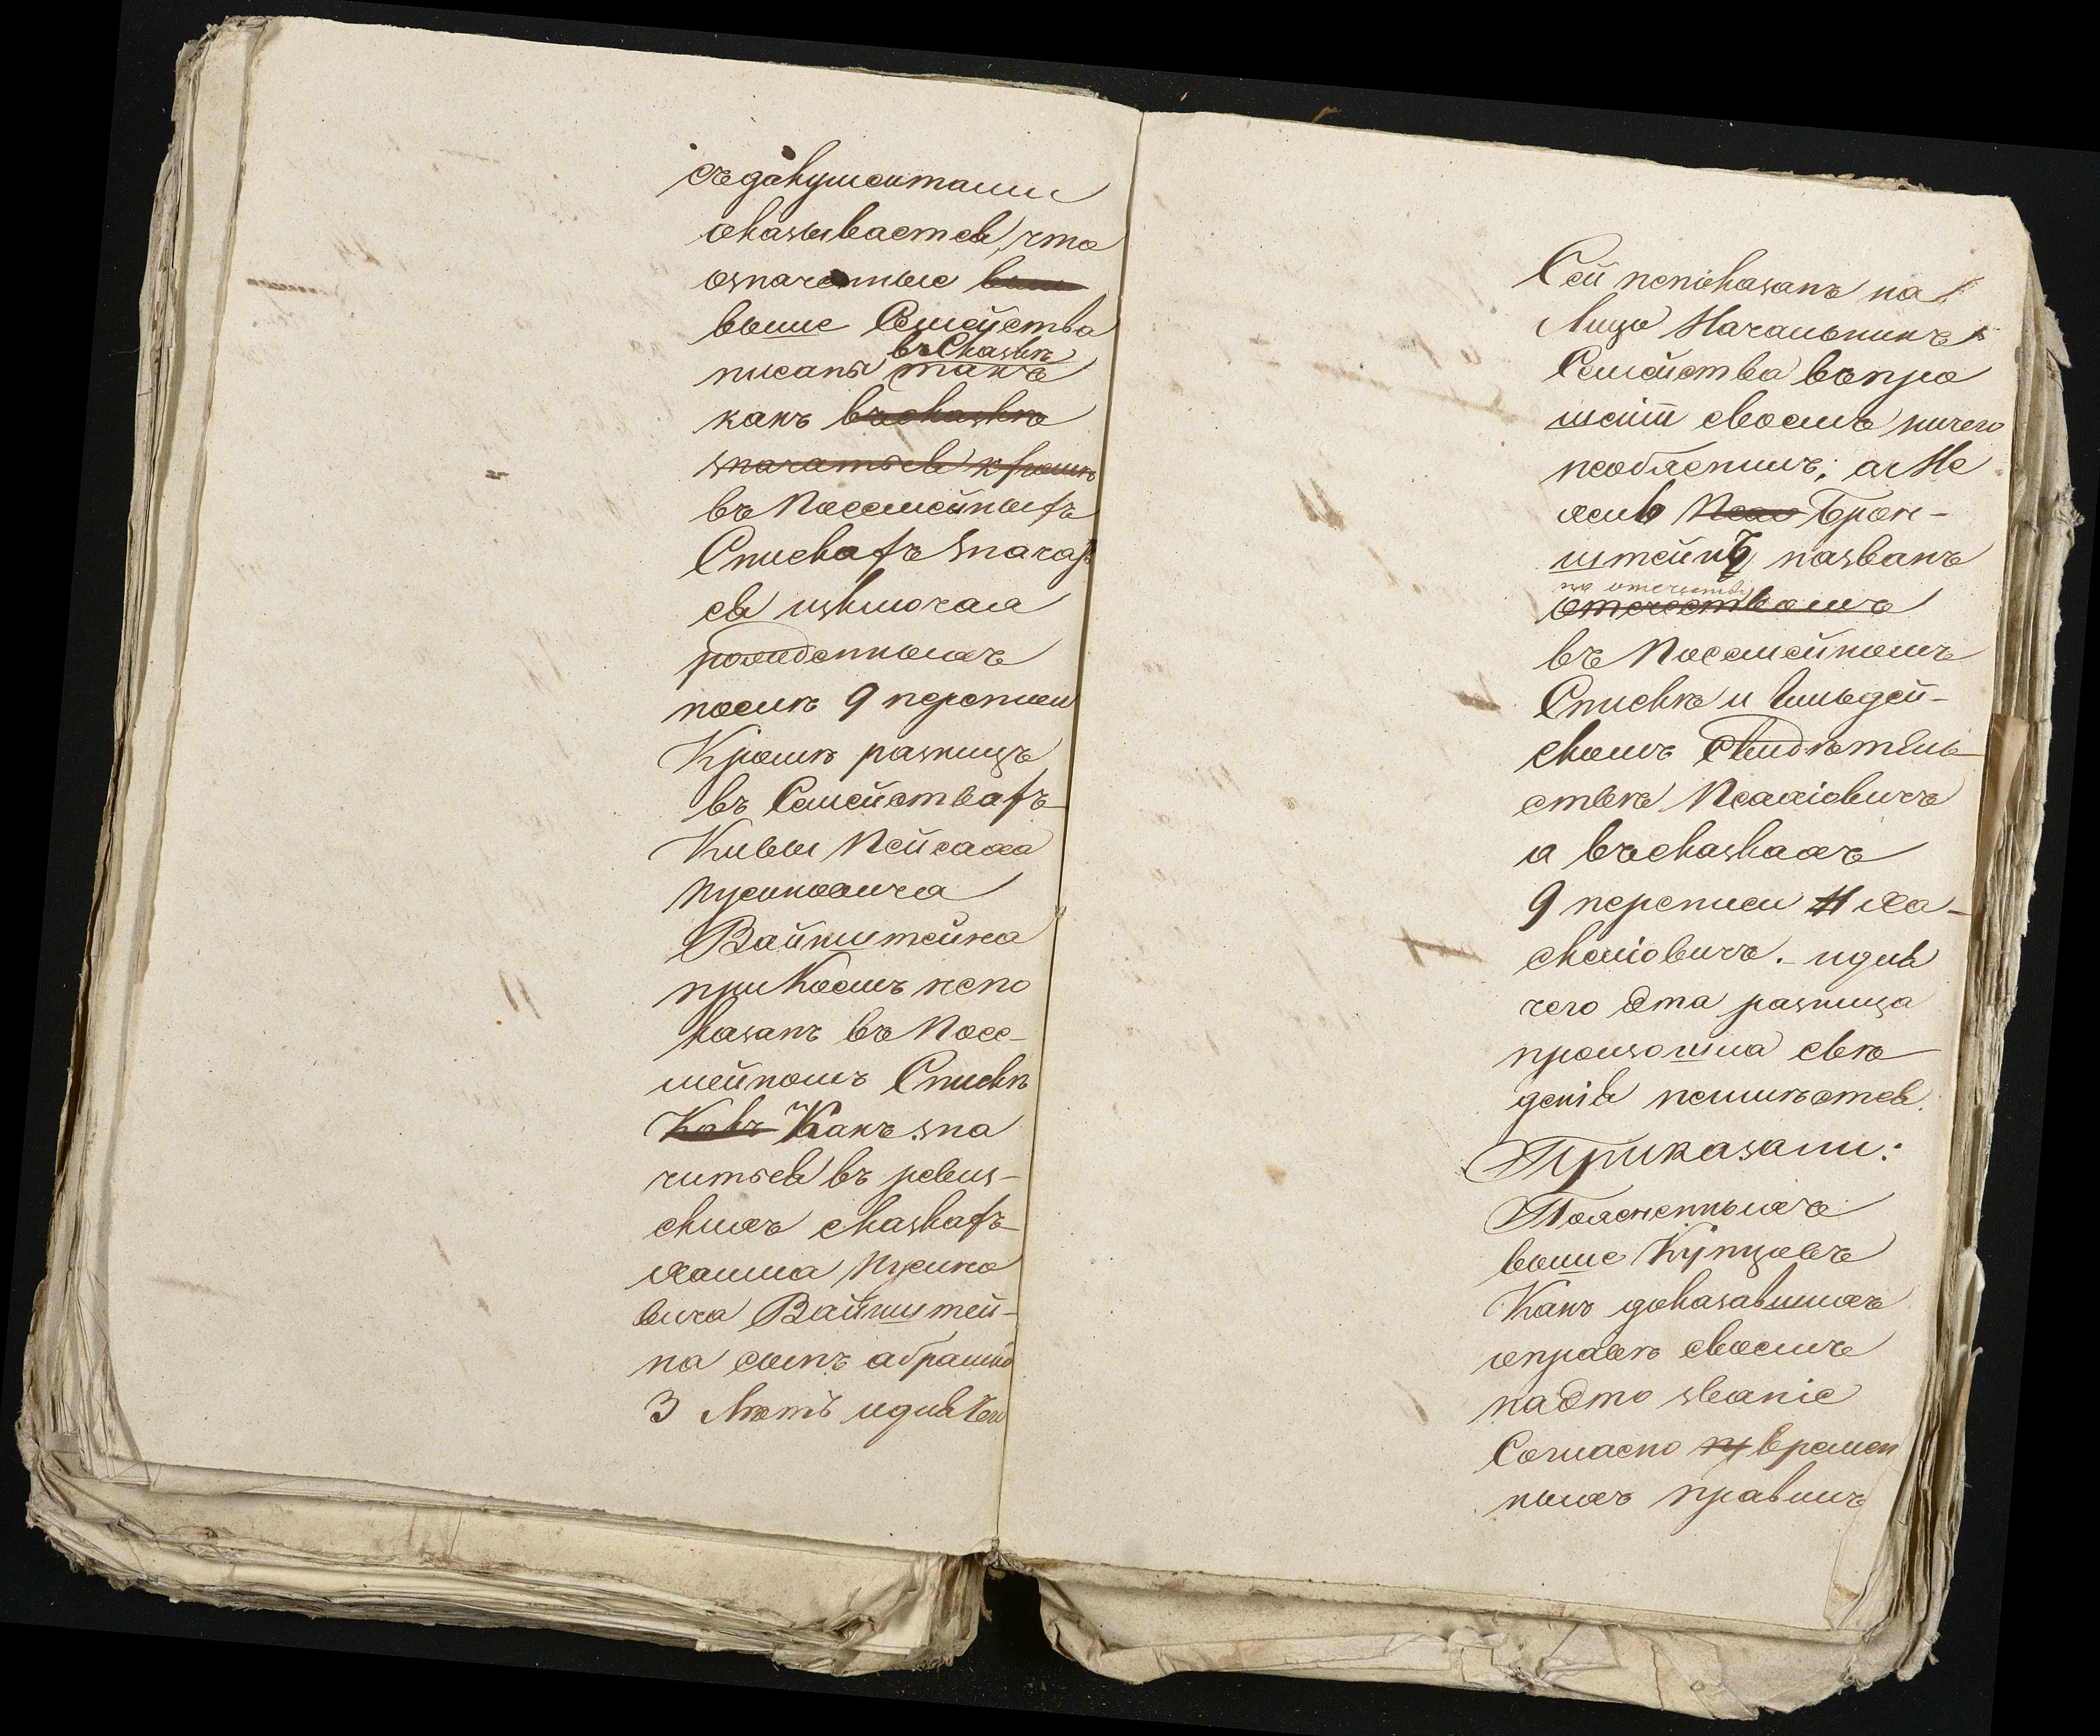 съ дакументами
оказывается, что
означенные выш
выше Семейства
въ Сказке
писаны такъ
какъ въ сказкѣ
значатся кромѣ
въ Посемейныхъ
Спискахъ значат
ся изключая
рожденныхъ
послѣ 9 переписи
Кромѣ разницъ
въ Семействахъ
Кивы Пейсаха
Нусиновича
Вайнштейна
при коемъ непо
казанъ въ Посе-
мейномъ Спискѣ
Какъ Какъ зна
чится въ ревиз-
скихъ сказкахъ
Хаима Нусино
вича Вайнштей-
на сынъ абрамко
3 Лѣтъ и для чего
Сей непоказанъ на
Лицо Начальникъ
Семейства въ про
шеніи своемъ ничего
необяснилъ; а Не
хемь Бron-
штейнъ названъ
по отчеству
отчествомъ
въ Посемейномъ
Спискѣ и Гильдей-
скомъ свидѣтель
ствѣ Псахіовичъ
а въ сказкахъ
9 переписи Ха-
скеліовичъ. и для
чего эта разница
произошла свѣ
денія неимѣется.
Приказали:
Поясненныхъ
выше Купцовъ
Какъ доказавшихъ
оправѣ своемъ
на это званіе
Согласно пр времен
ныхъ правилъ